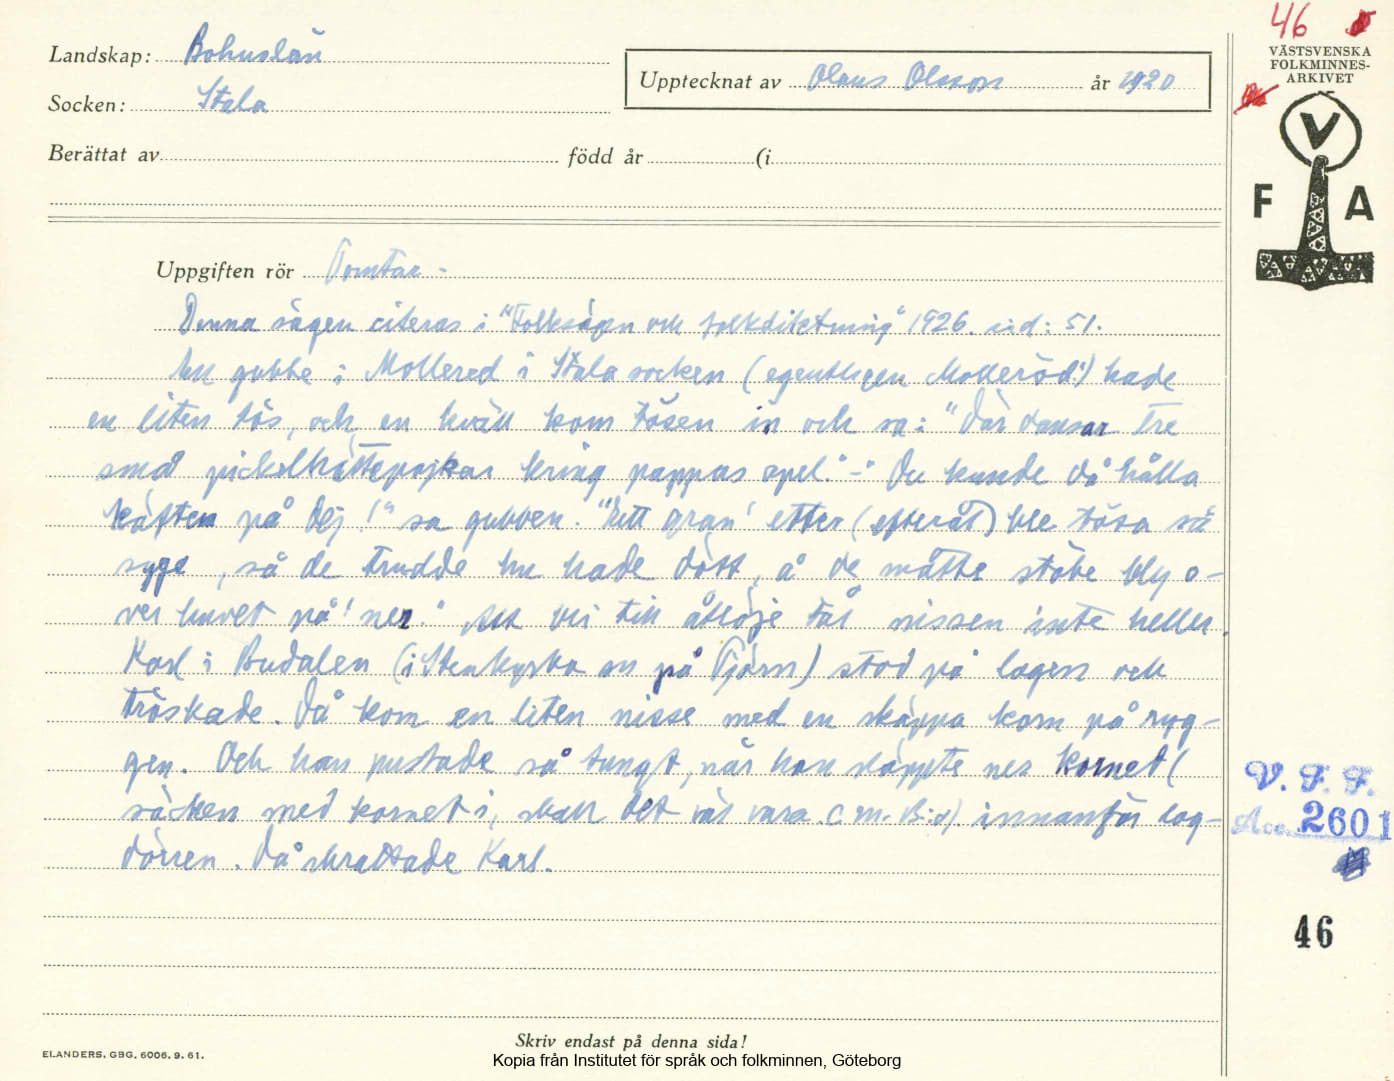 46
VÄSTSVENSKA
FOLKMINNES-
ARKIVET
V
F A
Landskap: Bohuslän
Socken: Stala
Upptecknat av Olaus Olsson år 1920
Berättat av född år (i
Uppgiften rör Tomtar -
Denna sägen citeras i "Folksägen och folkdiktning" 1926. sid: 51.
En gubbe i Mollered i Stala socken (egentligen Molleröd!) hade
en liten tös, och en kväll kom tösen in och sa: "Där dansar tre
små pickelhättepojkar kring pappas apel." -" Du kunde då hålla
käften på dej!" sa gubben. "Ett gran' etter (efteråt) ble tösa så
syge, så de trudde hu hade dött, å de måtte stöbe bly o-
ver huvet på' ner." Att bli till åtlöje tål nissen inte heller.
Karl i Budalen (i Stenkyrka sn på Tjörn) stod på logen och
tröskade. Då kom en liten nisse med en skäppa korn på ryg-
gen. Och han pustade så tungt, när han släppte ner kornet (
säcken med kornet i, skall det väl vara. C.M.B:s) innanför log-
dörren. Då skrattade Karl.
V. F. F.
Acc. 2601
46
Skriv endast på denna sida!
ELANDERS, GBG, 6006. 9. 61.
Kopia från Institutet för språk och folkminnen, Göteborg